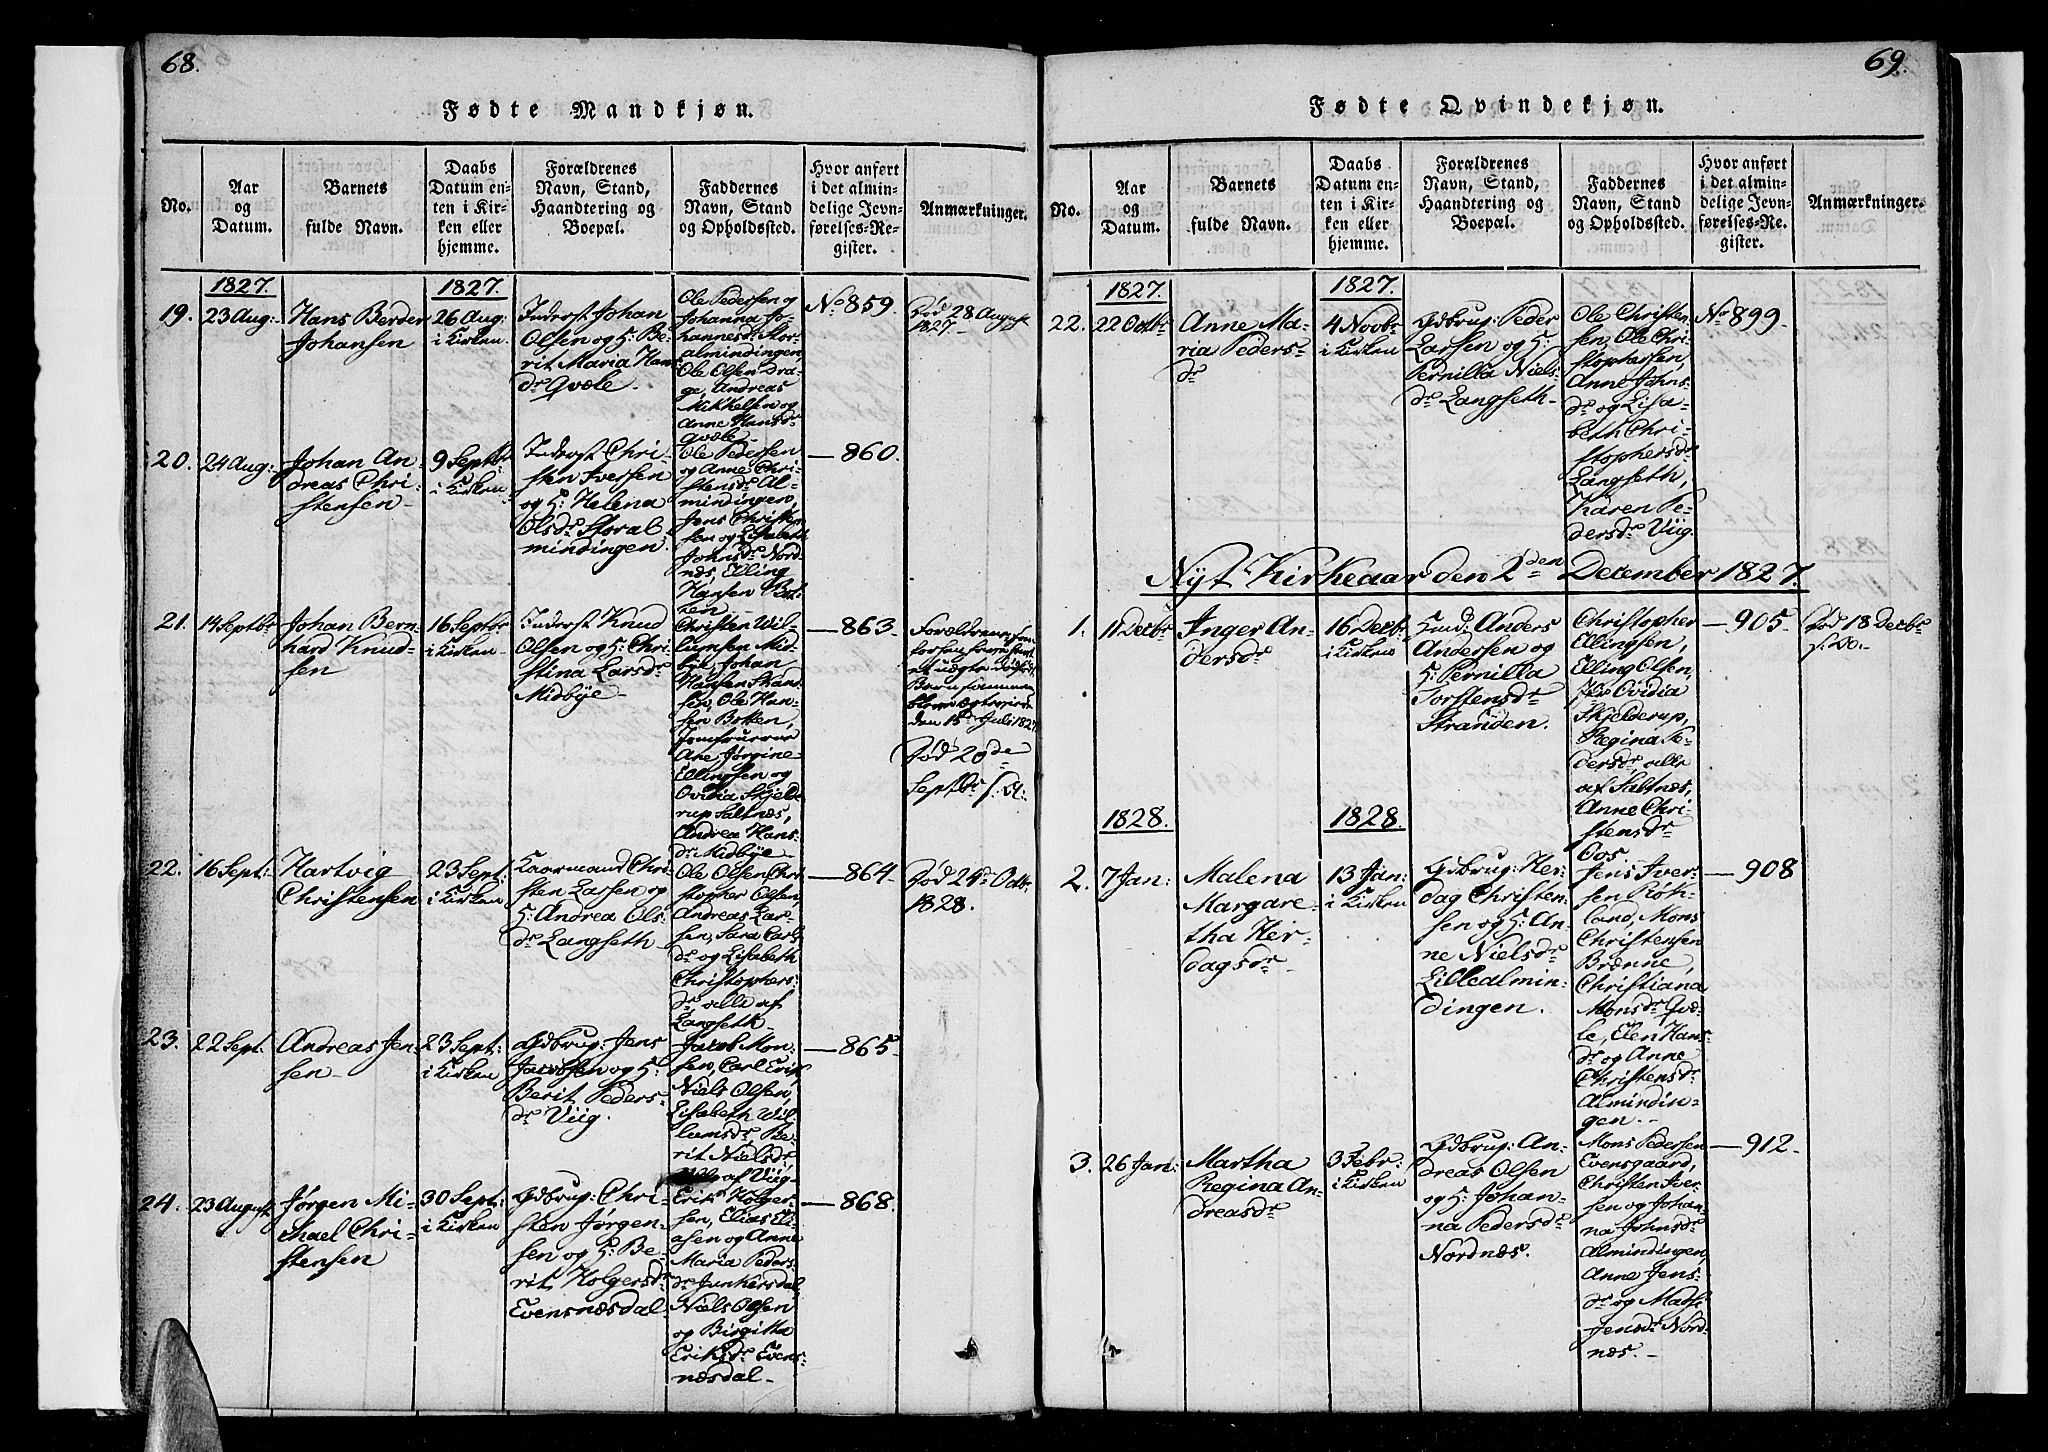 68.
Fødte Mandkjøn.
No.
Aar
og
Datum.
Barnets
fulde Navn.
Daabs
Datum en-
ten i Kir-
ken eller
hjemme.
Forældrenes
Navn, Stand,
Haandtering og
Boepæl.
Faddernes
Navn, Stand
og Opholdssted.
Hvor anført
i det almin-
delige Jevn-
førelses-Re-
gister.
Anmærkninger.
1827.
1827.
19.
23 Aug:
Hans Berder
Johansen
26 Aug:
i Kirken
Inderst Johan
Olsen og H: Be-
rit Maria Hans
dr Qvæle.
Ole Pedersen og
Johanna Jo-
hannesdr Stor-
almindingen,
Ole Olsen Dra-
ge, Andreas
Mikkelsen og
Anne Hansdr
Qvæle
No 859
Død 28 August
1827.
20.
24 Aug:
Johan An-
dreas Chri-
stensen
9 Septbr
i Kirken
Inderst Chri-
sten Iversen
og H: Helena
Olsdr Storal-
mindingen.
Ole Pedersen
og Anne Chri-
stensdr Al-
mindingen,
Jens Christen-
sen og Lisabeth
Johnsdr Nord-
næs, Elling
Hansen Bot-
ken
860.
21.
14 Septbr
Johan Bern-
hard Knud-
sen
16 Septbr
i Kirken
Inderst Knud
Olsen og H: Chri-
stina Larsdr
Midbye
Christen Wil-
lumsen Mid-
bye, Johan
Hansen
Ole Han-
sen Botken,
Jomfruerne
Ane Jørgine
Ellingsen og
Ovidia Skjeld-
rup Saltnæs,
Andrea Hans-
dr Midbye
863.
Forældrene
den 15de Juli 1827.
Død 20de
Septbr s: A:
22.
16 Sept:
Hartvig
Christensen
23 Sept:
i Kirken
Kaarmand Chri-
sten Larsen og
H: Andrea Ols-
dr Langseth
Ole Olsen, Chri-
stopher Olsen,
Andreas Lar-
sen, Sara Carls
dr og Lisabeth
Christophers-
dr alle af
Langseth
864.
Død 24de Octbr
1828.
23.
22 Sept.
Andreas Jen-
sen
23 Sept:
i Kirken
Gdbrug: Jens
Jacobsen og H:
Berit Peders-
dr Viig.
Jacob Mon-
sen, Carl Erik,
Niels Olsen,
Lisabeth Wil-
lumsdr Be-
rit Nielsdr
alle af Viig
865.
24.
23 August
Jørgen Mi-
chael Chri-
stensen
30 Sept:
i Kirken
Gdbrug: Chri-
sten Jørgen-
sen og H: Be-
rit Holgersdr
Evensnæsdal
Erik Holger-
sen, Elias Eli-
asen og Anne
Maria Peders-
dr Junkersdal,
Niels Olsen
og Birgitha
Eriksdr Evens-
næsdal
868.
69.
Fødte Qvindekjøn.
No.
Aar
og
Datum.
Barnets
fulde Navn.
Daabs
Datum en-
ten i Kir-
ken eller
hjemme.
Forældrenes
Navn, Stand,
Haandtering og
Boepæl.
Faddernes
Navn, Stand
og Opholdssted.
Hvor anført
i det almin-
delige Jevn-
førelses-Re-
gister.
Anmærkninger.
1827.
1827.
22.
22 Octbr
Anne Ma-
ria Peders-
dr
4 Novbr
i Kirken
Gdbrug: Peder
Larsen og H:
Pernilla Niels-
dr Langseth
Ole Christen-
sen, Ole Chri-
stophersen,
Anne Johns-
dr og Lisa-
beth Chri-
stophersdr
Langseth,
Karen Pe-
dersdr Viig.
No 899.
Nyt Kirkeaar den 2den December 1827.
1.
11 Decbr
Inger An-
dersdr
16 Decbr
i Kirken
Huusmd: Anders
Andersen og
H: Pernilla
Torstensdr
Stranden.
Christopher
Ellingsen,
Elling Olsen,
Jfr Ovidia
Skjelderup,
Regina Pe-
dersdr alle
af Saltnæs,
Anne Chri-
stensdr
Oos.
905.
Død 18 Decbr
s: A.
1828.
1828.
2.
7 Jan:
Malena
Margare-
tha Her-
dagsdr
13 Jan:
i Kirken
Gdbrug: Her-
dag Christen-
sen og H: An-
ne Nielsdr
Lillealmin-
dingen.
Jens Iver-
sen Røk-
land, Mons
Christensen
Brænne,
Christiana
Monsdr Qvæ-
le, Elen Hans-
dr og Anne
Christensdr
Almindin-
gen.
908
3.
26 Jan:
Martha
Regina An-
dreasdr
3 Febr:
i Kirken
Gdbrug: An-
dreas Olsen
og H: Johan-
na Pedersdr
Nordnæs.
Mons Pedersen
Evensgaard,
Christen Iver-
sen og Johan-
na Johnsdr
Almindingen,
Anne Jens-
dr og
Jensdr Nord-
næs.
912.